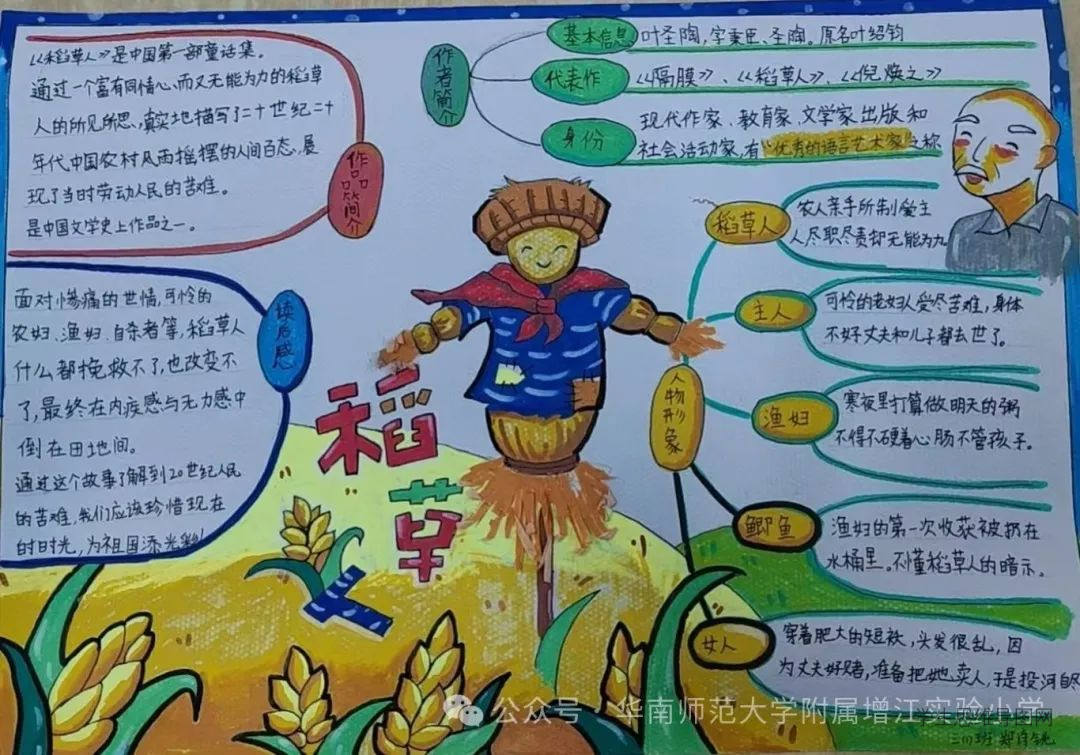 《稻草人》是中国第一部童话集。
通过一个富有同情心而又无能为力的稻草
人的所见所思,真实地描写了二十世纪二十
年代中国农村风雨摇摆的人间百态,展
现了当时劳动人民的苦难。
是中国文学史上作品之一。
作品简介
面对惨痛的世情,可怜的
农妇、渔妇、自杀者等,稻草人
什么都挽救不了,也改变不
了,最终在内疚感与无力感中
倒在田地间。
通过这个故事了解到20世纪人民
的苦难,我们应该珍惜现在
的时光,为祖国添光彩!
读后感
稻草人
作者简介
基本信息
叶圣陶,字秉臣、圣陶。原名叶绍钧
代表作
《隔膜》、《稻草人》、《倪焕之》
身份
现代作家、教育家、文学家出版和
社会活动家,有“优秀的语言艺术家”之称
人物形象
稻草人
农人亲手所制爱主
人尽职尽责却无能为力。
主人
可怜的老妇人受尽苦难,身体
不好丈夫和儿子都去世了。
渔妇
寒夜里打算做明天的粥
不得不硬着心肠不管孩子。
鲫鱼
渔妇的第一次收获被扔在
水桶里。不懂稻草人的暗示。
女人
穿着肥大的短袄,头发很乱,因
为丈夫好赌,准备把她卖人,于是投河自尽
公众号·华南师范大学附属增江实验小学